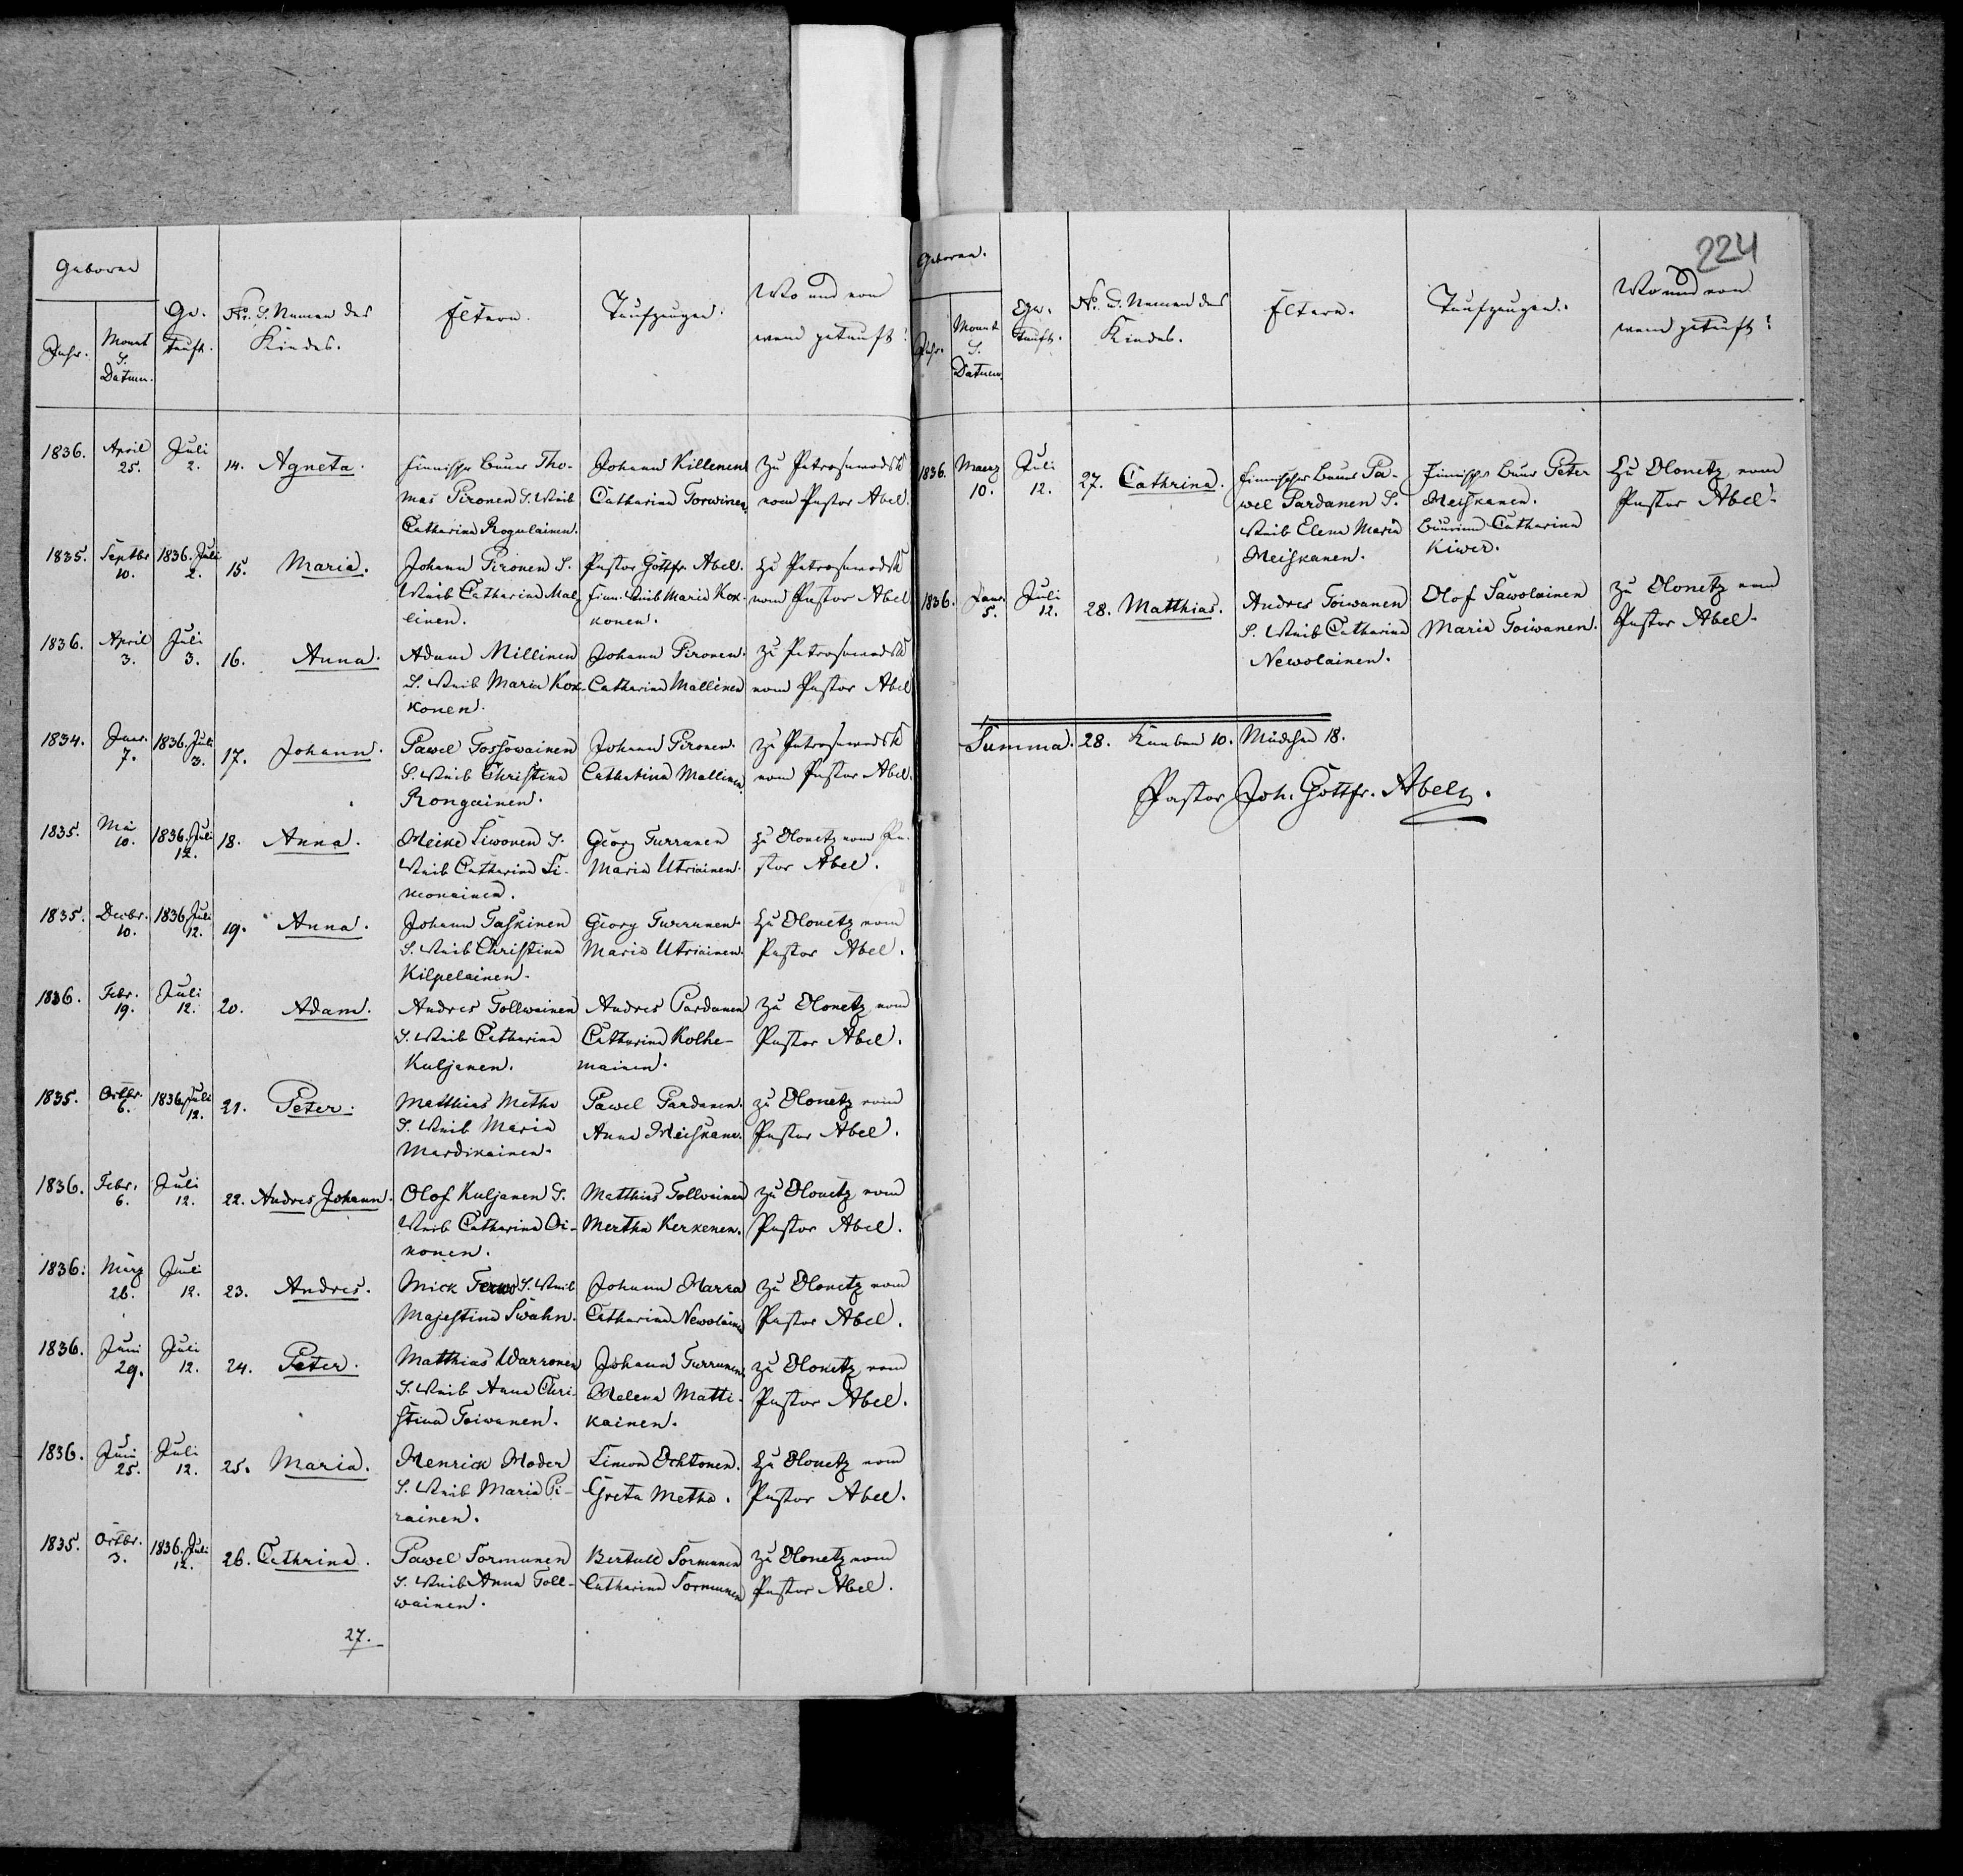 Geboren
Jahr.
Monat
&
Datum.
Ge-
tauft.
No. & Namen des
Kindes.
Eltern.
Taufzeugen.
Wo und von
wem getauft?
1836. April 25. Juli 2. 14. Agneta.
Finnischer Bauer Tho-
mas Pironen & Weib
Catharina Rogulainen.
Johann Killenen
Catharina Torwinen.
Zu Petrosawodsk
vom Pastor Abel.
1835. Septbr 10. 1836. Juli 2. 15. Maria.
Johann Pironen &
Weib Catharina Mal-
linen.
Pastor Gottfr. Abel.
Finn. Weib Maria Kok-
konen.
Zu Petrosawodsk
vom Pastor Abel
1836. April 3. Juli 3. 16. Anna.
Adam Millinen
& Weib Maria Kok-
konen.
Johann Pironen.
Catharina Mallinen
Zu Petrosawodsk
vom Pastor Abel
1834. Janr. 7. 1836. Juli 3. 17. Johann.
Pawel Tossowainen
& Weib Christina
Rongainen.
Johann Pironen.
Catharina Mallinen
Zu Petrosawodsk
vom Pastor Abel.
1835. Mai 10. 1836. Juli 12. 18. Anna.
Heike Siwonen &
Weib Catharina Si-
monainen.
Georg Turrunen
Maria Utriainen.
Zu Olonetz vom Pa-
stor Abel.
1835. Decbr. 10. 1836. Juli 12. 19. Anna.
Johann Taskinen
& Weib Christina
Kilpelainen.
Georg Turrunen.
Maria Utriainen.
Zu Olonetz vom
Pastor Abel.
1836. Febr. 19. Juli 12. 20. Adam.
Andres Tollwainen
& Weib Catharina
Kuljanen.
Andres Pardanen
Catharina Kolhe-
mainen.
Zu Olonetz vom
Pastor Abel.
1835. Octbr. 6. 1836. Juli 12. 21. Peter.
Matthias Metho
& Weib Maria
Mardikainen.
Pawel Pardanen.
Anna Heiskane.
zu Olonetz vom
Pastor Abel.
1836. Febr. 6. Juli 12. 22. Andres Johann.
Olof Kuljanen &
Weib Catharina Oi-
nonen.
Matthias Tollwainen
Mertha Kerkenen.
zu Olonetz vom
Pastor Abel.
1836. März 26. Juli 12. 23. Andres.
Mick & Weib
Majestina Swahn.
Johann Harra
Catharina Newolainen
Zu Olonetz vom
Pastor Abel.
1836. Juni 29. Juli 12. 24. Peter.
Matthias Warronen
& Weib Anna Chri-
stina Toiwanen.
Johann Turrunen.
Helena Matti-
kainen.
zu Olonetz vom
Pastor Abel.
1836. Juni 25. Juli 12. 25. Maria.
Henrick Moder
& Weib Maria Pi-
rainen.
Simon Ochtonen.
Greta Metho.
Zu Olonetz vom
Pastor Abel.
1835. Octbr. 3. 1836. Juli 12. 26. Cathrina.
Pawel Sormunen
& Weib Anna Toll-
wainen.
Bertull Sormunen
Catharina Sormunen
Zu Olonetz vom
Pastor Abel.
27.
224
Geboren.
Jahr.
Monat
&
Datum.
Ge-
tauft.
No. & Namen des
Kindes.
Eltern.
Taufzeugen.
Wo und von
wem getauft?
1836. Maerz 10. Juli 12. 27. Cathrina.
Finnischer Bauer Pa-
wel Pardanen &
Weib Elena Maria
Heiskanen.
Finnischer Bauer Peter
Heiskanen.
Bäuerinn Catharina
Kiwer.
Zu Olonetz vom
Pastor Abel.
1836. Janr. 5. Juli 12. 28. Matthias.
Andres Toiwanen
& Weib Catharina
Newolainen.
Olof Sawolainen
Maria Toiwanen.
Zu Olonetz vom
Pastor Abel.
Summa. 28. Knaben 10. Mädchen 18.
Pastor Joh. Gottfr. Abel.